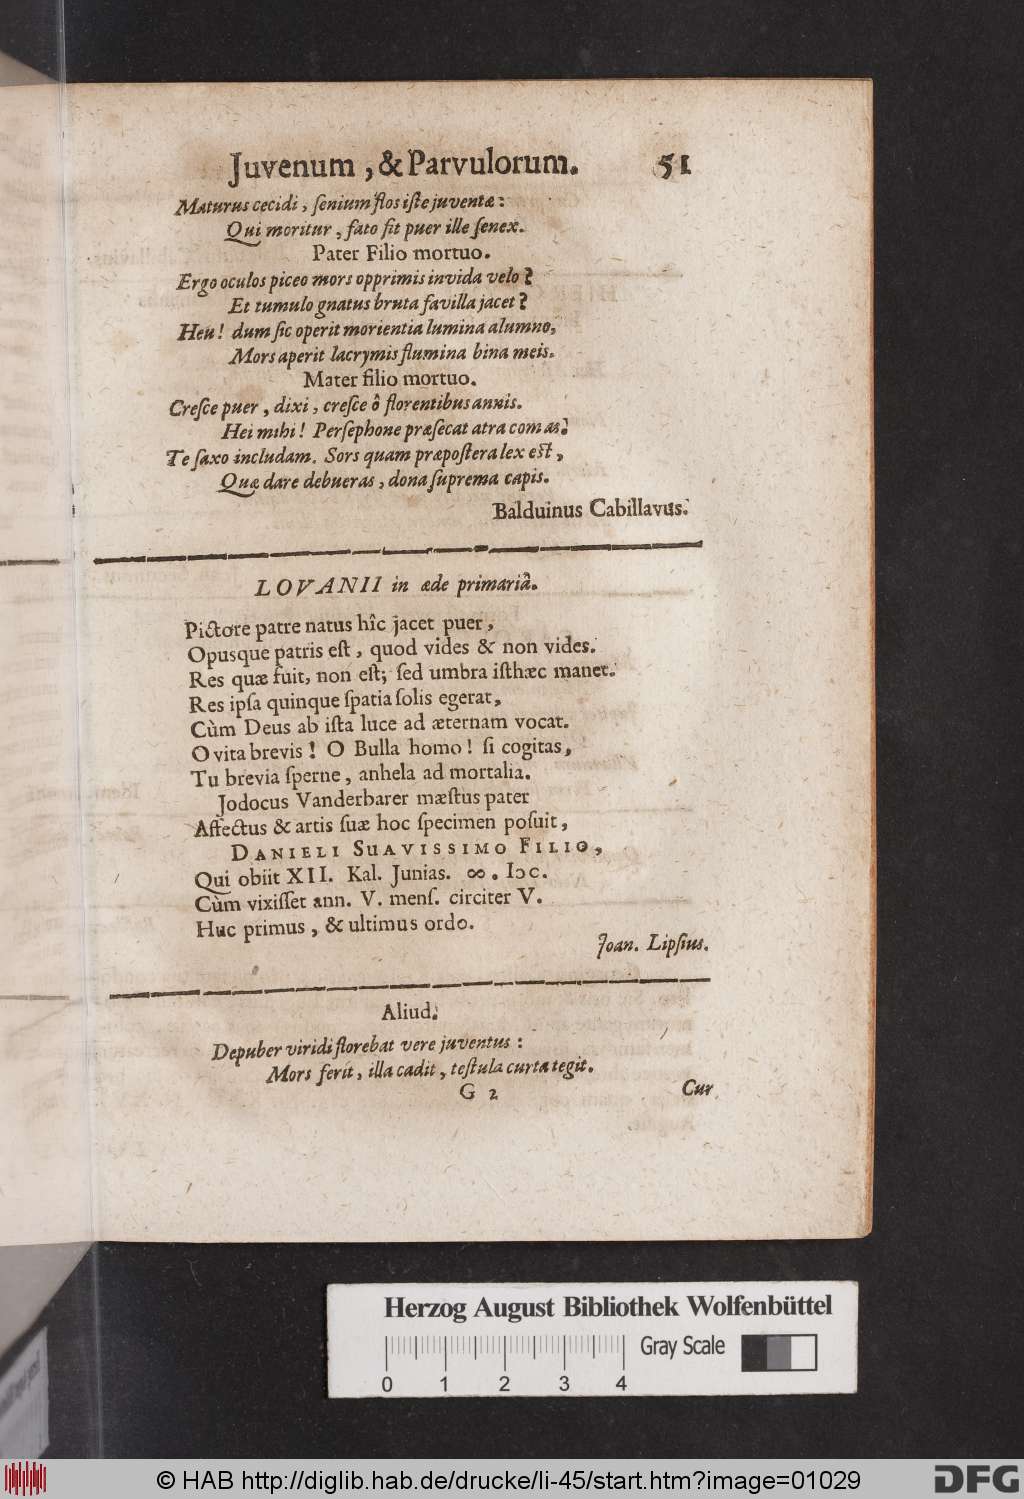 Juvenum, & Parvulorum. 51
Maturus cecidi, ſenium flos iſte juventæ:
Qui moritur, fato ſit puer ille ſenex.
Pater Filio mortuo.
Ergo oculos piceo mors opprimis invida velo?
Et tumulo gnatus bruta favilla jacet?
Heu! dum ſic operit morientia lumina alumno,
Mors aperit lacrymis flumina bina meis.
Mater filio mortuo.
Creſce puer, dixi, creſce ô florentibus annis.
Hei mihi! Perſephone præſecat atra comas.
Te ſaxo includam. Sors quam præpoſtera lex eſt,
Quæ dare debueras, dona ſuprema capis.
Balduinus Cabillavus.
LOVANII in æde primariâ.
Pictore patre natus hîc jacet puer,
Opusque patris eſt, quod vides & non vides.
Res quæ fuit, non eſt; ſed umbra iſthæc manet.
Res ipſa quinque ſpatia ſolis egerat,
Cùm Deus ab iſta luce ad æternam vocat.
O vita brevis! O Bulla homo! ſi cogitas,
Tu brevia ſperne, anhela ad mortalia.
Jodocus Vanderbarer mæſtus pater
Affectus & artis ſuæ hoc ſpecimen poſuit,
DANIELI SUAVISSIMO FILIO,
Qui obiit XII. Kal. Junias. ∞. Iↄc.
Cùm vixiſſet ann. V. menſ. circiter V.
Huc primus, & ultimus ordo.
Joan. Lipſius.
Aliud.
Depuber viridi florebat vere juventus:
Mors ferit, illa cadit, teſtula curta tegit.
G 2 Cur
Herzog August Bibliothek Wolfenbüttel
Gray Scale
0 1 2 3 4
© HAB http://diglib.hab.de/drucke/li-45/start.htm?image=01029 DFG